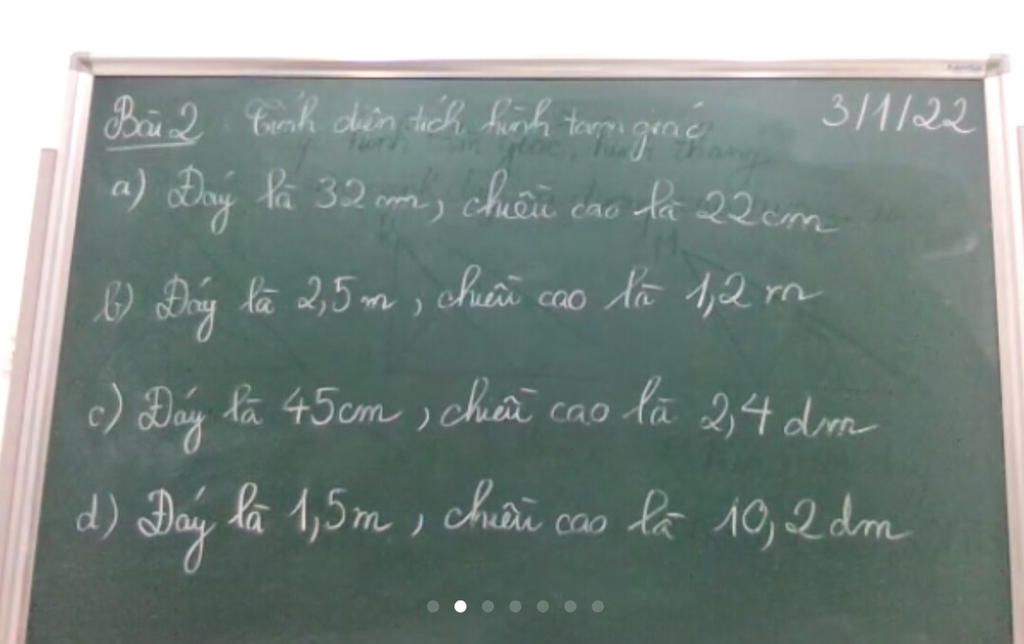 Bài 2 Tính diện tích hình tam giác 3/1/22
a) Đáy là 32 cm, chiều cao là 22cm
b) Đáy là 2,5m, chiều cao là 1,2 m
c) Đáy là 45cm, chiều cao là 2,4 dm
d) Đáy là 1,5m, chiều cao là 10,2dm